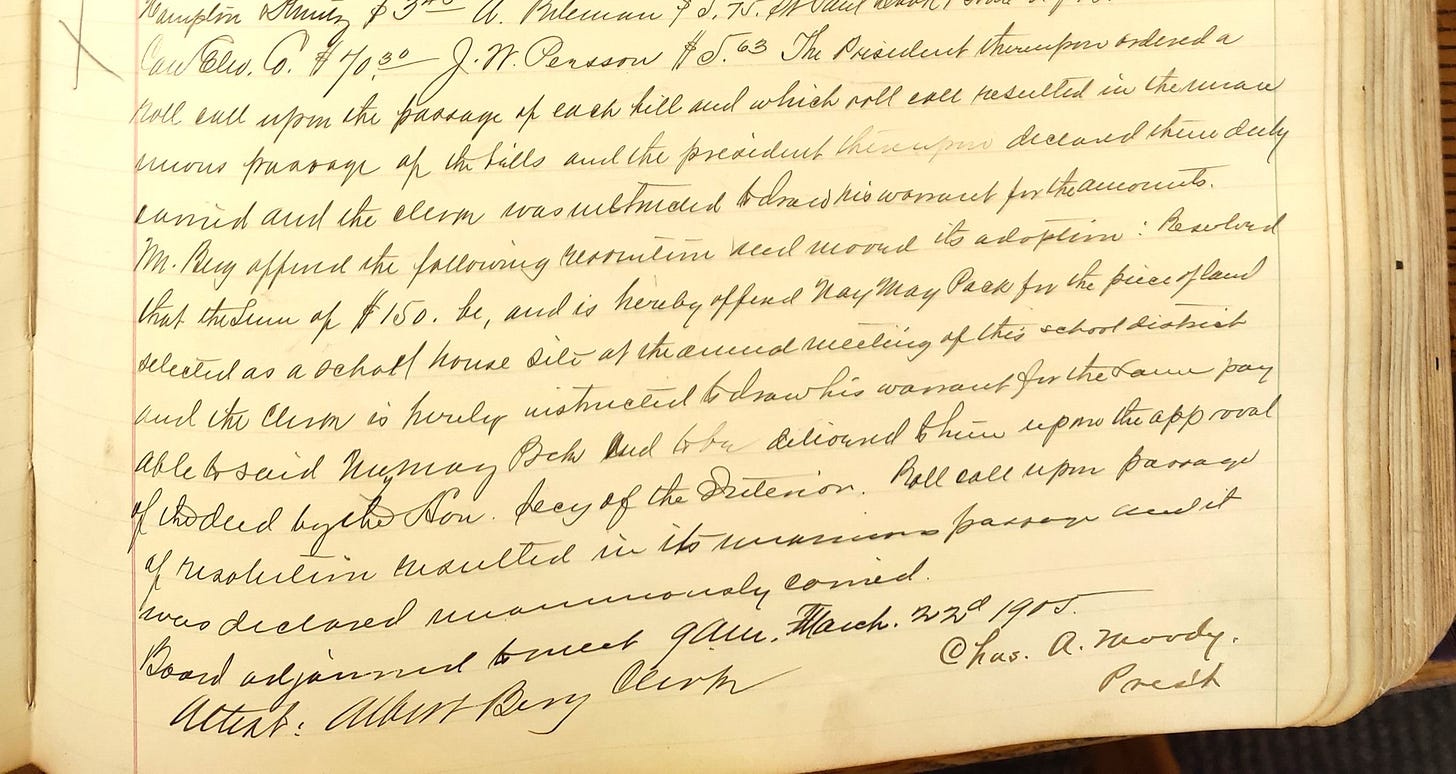 Hampton & $3 A. Bileman $5.75. St Paul
Can Elev. Co. $70.30 J. W. Persson $5.63 The President thereupon ordered a
roll call upon the passage of each bill and which roll call resulted in the unan
imous passage of the bills and the president thereupon declared them duly
carried and the clerk was instructed to draw his warrant for the amounts.
Mr. Berg offered the following resolution and moved its adoption: Resolved
that the Sum of $150. be, and is hereby offered Nay May Pack for the piece of land
selected as a school house site at the annual meeting of this school district
and the Clerk is hereby instructed to draw his warrant for the same pay
able to said and to be delivered to him upon the approval
of the deed by the Hon. Secy of the Interior. Roll call upon passage
of resolution resulted in its unanimous passage and it
was declared unanimously carried.
Board adjourned to meet 9 am. March. 22d 1905.
Chas. A. Moody.
Prest
Attest: Albert Berg Clerk